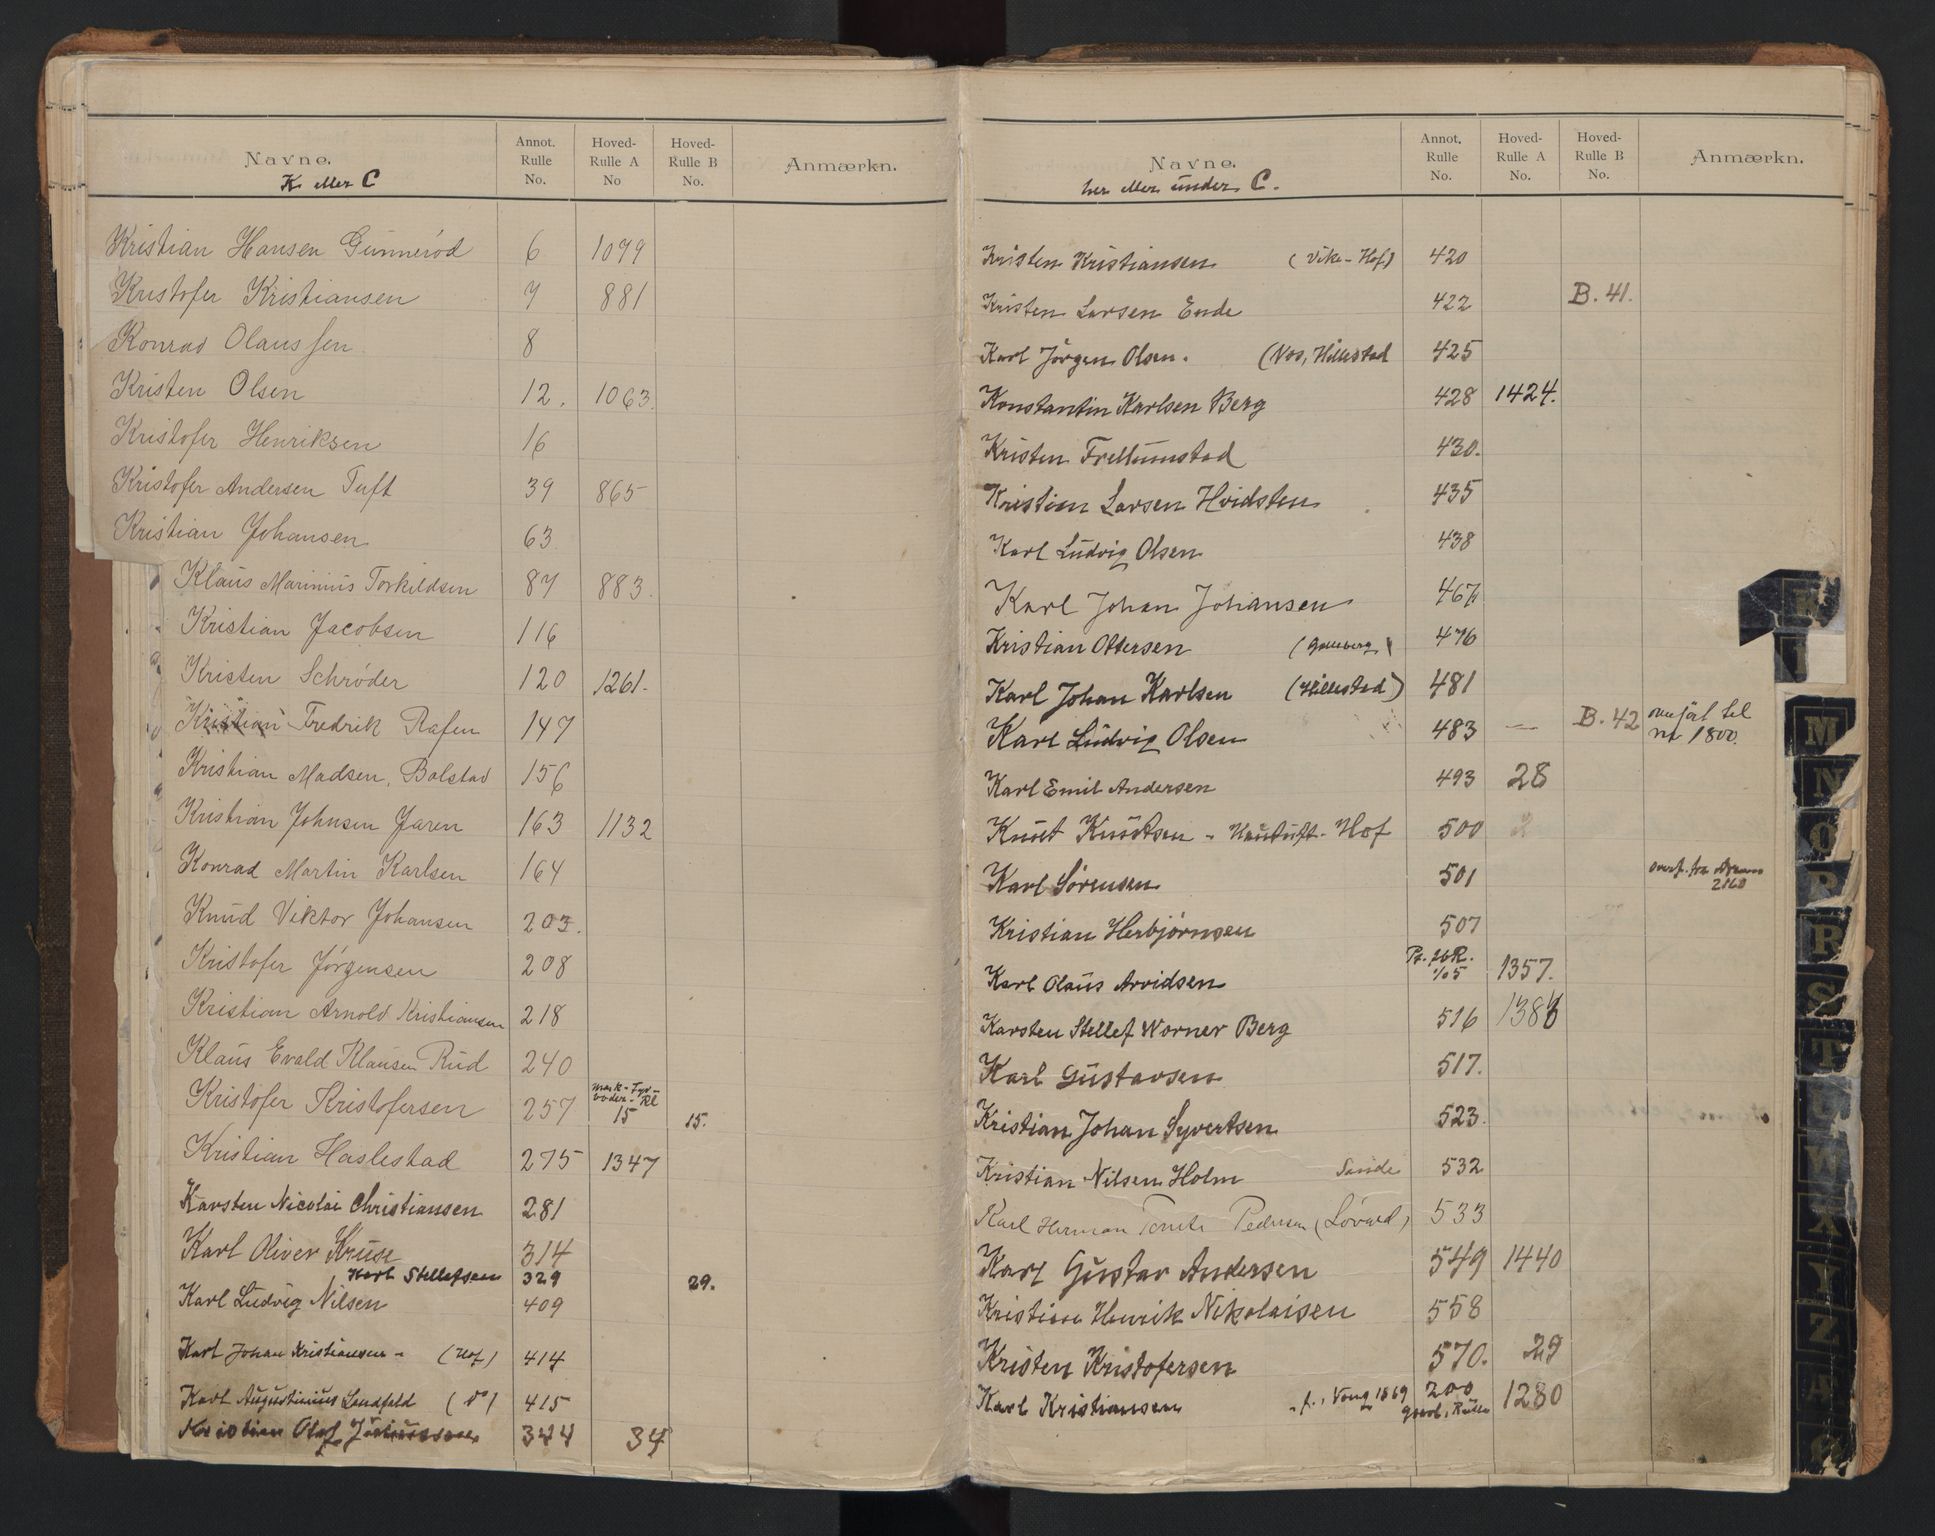 Navne. Annot. Rulle No. Hoved-Rulle A No Hoved-Rulle B No. Anmærkn.
K eller C
Kristian Hansen Gunnerød 6 1079
Kristofer Kristiansen 7 881
Konrad Olaussen 8
Kristen Olsen 12. 1063.
Kristofer Henriksen 16
Kristofer Andersen Tuft 39 865
Kristian Johansen 63
Klaus Marinius Torkildsen 87 883.
Kristian Jacobsen 116
Kristen Schrøder 120 1261.
Kristian Fredrik Rafen 147
Kristian Madsen Bolstad 156
Kristian Johnsen Jaren 163 1132
Konrad Martin Karlsen 164
Knud Viktor Johansen 203.
Kristofer Jørgensen 208
Kristian Arnold Kristiansen 218
Klaus Evald Klausen Rud 240
Kristofer Kristofersen 257 15 15.
Kristian Haslestad 275 1347
Karsten Nicolai Christiansen 281
Karl Oliver Kruse 314
Karl Stellefsen 329 29.
Karl Ludvig Nilsen 409
Karl Johan Kristiansen - (Hof) 414
Karl Augustinius Lundfeld (do) 415
Kristian Olaf 344 34
Navne. Annot. Rulle No. Hoved-Rulle A No. Hoved-Rulle B No. Anmærkn.
her eller under C.
Kristen Kristiansen (Vike - Hof) 420
Kristen Larsen Ende 422 B. 41.
Karl Jørgen Olsen. (Nos, Hillestad 425
Konstantin Karlsen Berg 428 1424.
Kristen Frellumstad 430.
Kristian Larsen Hvidsten 435
Karl Ludvig Olsen 438
Karl Johan Johansen 467
Kristian Ottersen (Galleberg) 476
Karl Johan Karlsen (Hillestad) 481
Karl Ludvig Olsen 483 — B. 42 overført til nr 1800.
Karl Emil Andersen 493 28
Knut Knutsen - Hof 500 2
Karl Sørensen 501 overf. fra 2160
Kristian Herbjørnsen 507
Karl Olaus Arvidsen 1/05 1357.
Karsten Stellef Worner Berg 516 1386
Karl Gustavsen 517.
Kristian Johan Syvertsen 523.
Kristian Nilsen Holm Sande 532
Karl Herman Pedersen 533
Karl Gustav Andersen 549 1440
Kristian Henrik Nikolaisen 558
Kristen Kristofersen 570. 29
Karl Kristiansen 1869 200 1280
K
L
M
N
O
P
R
S
T
U
W
X
Z